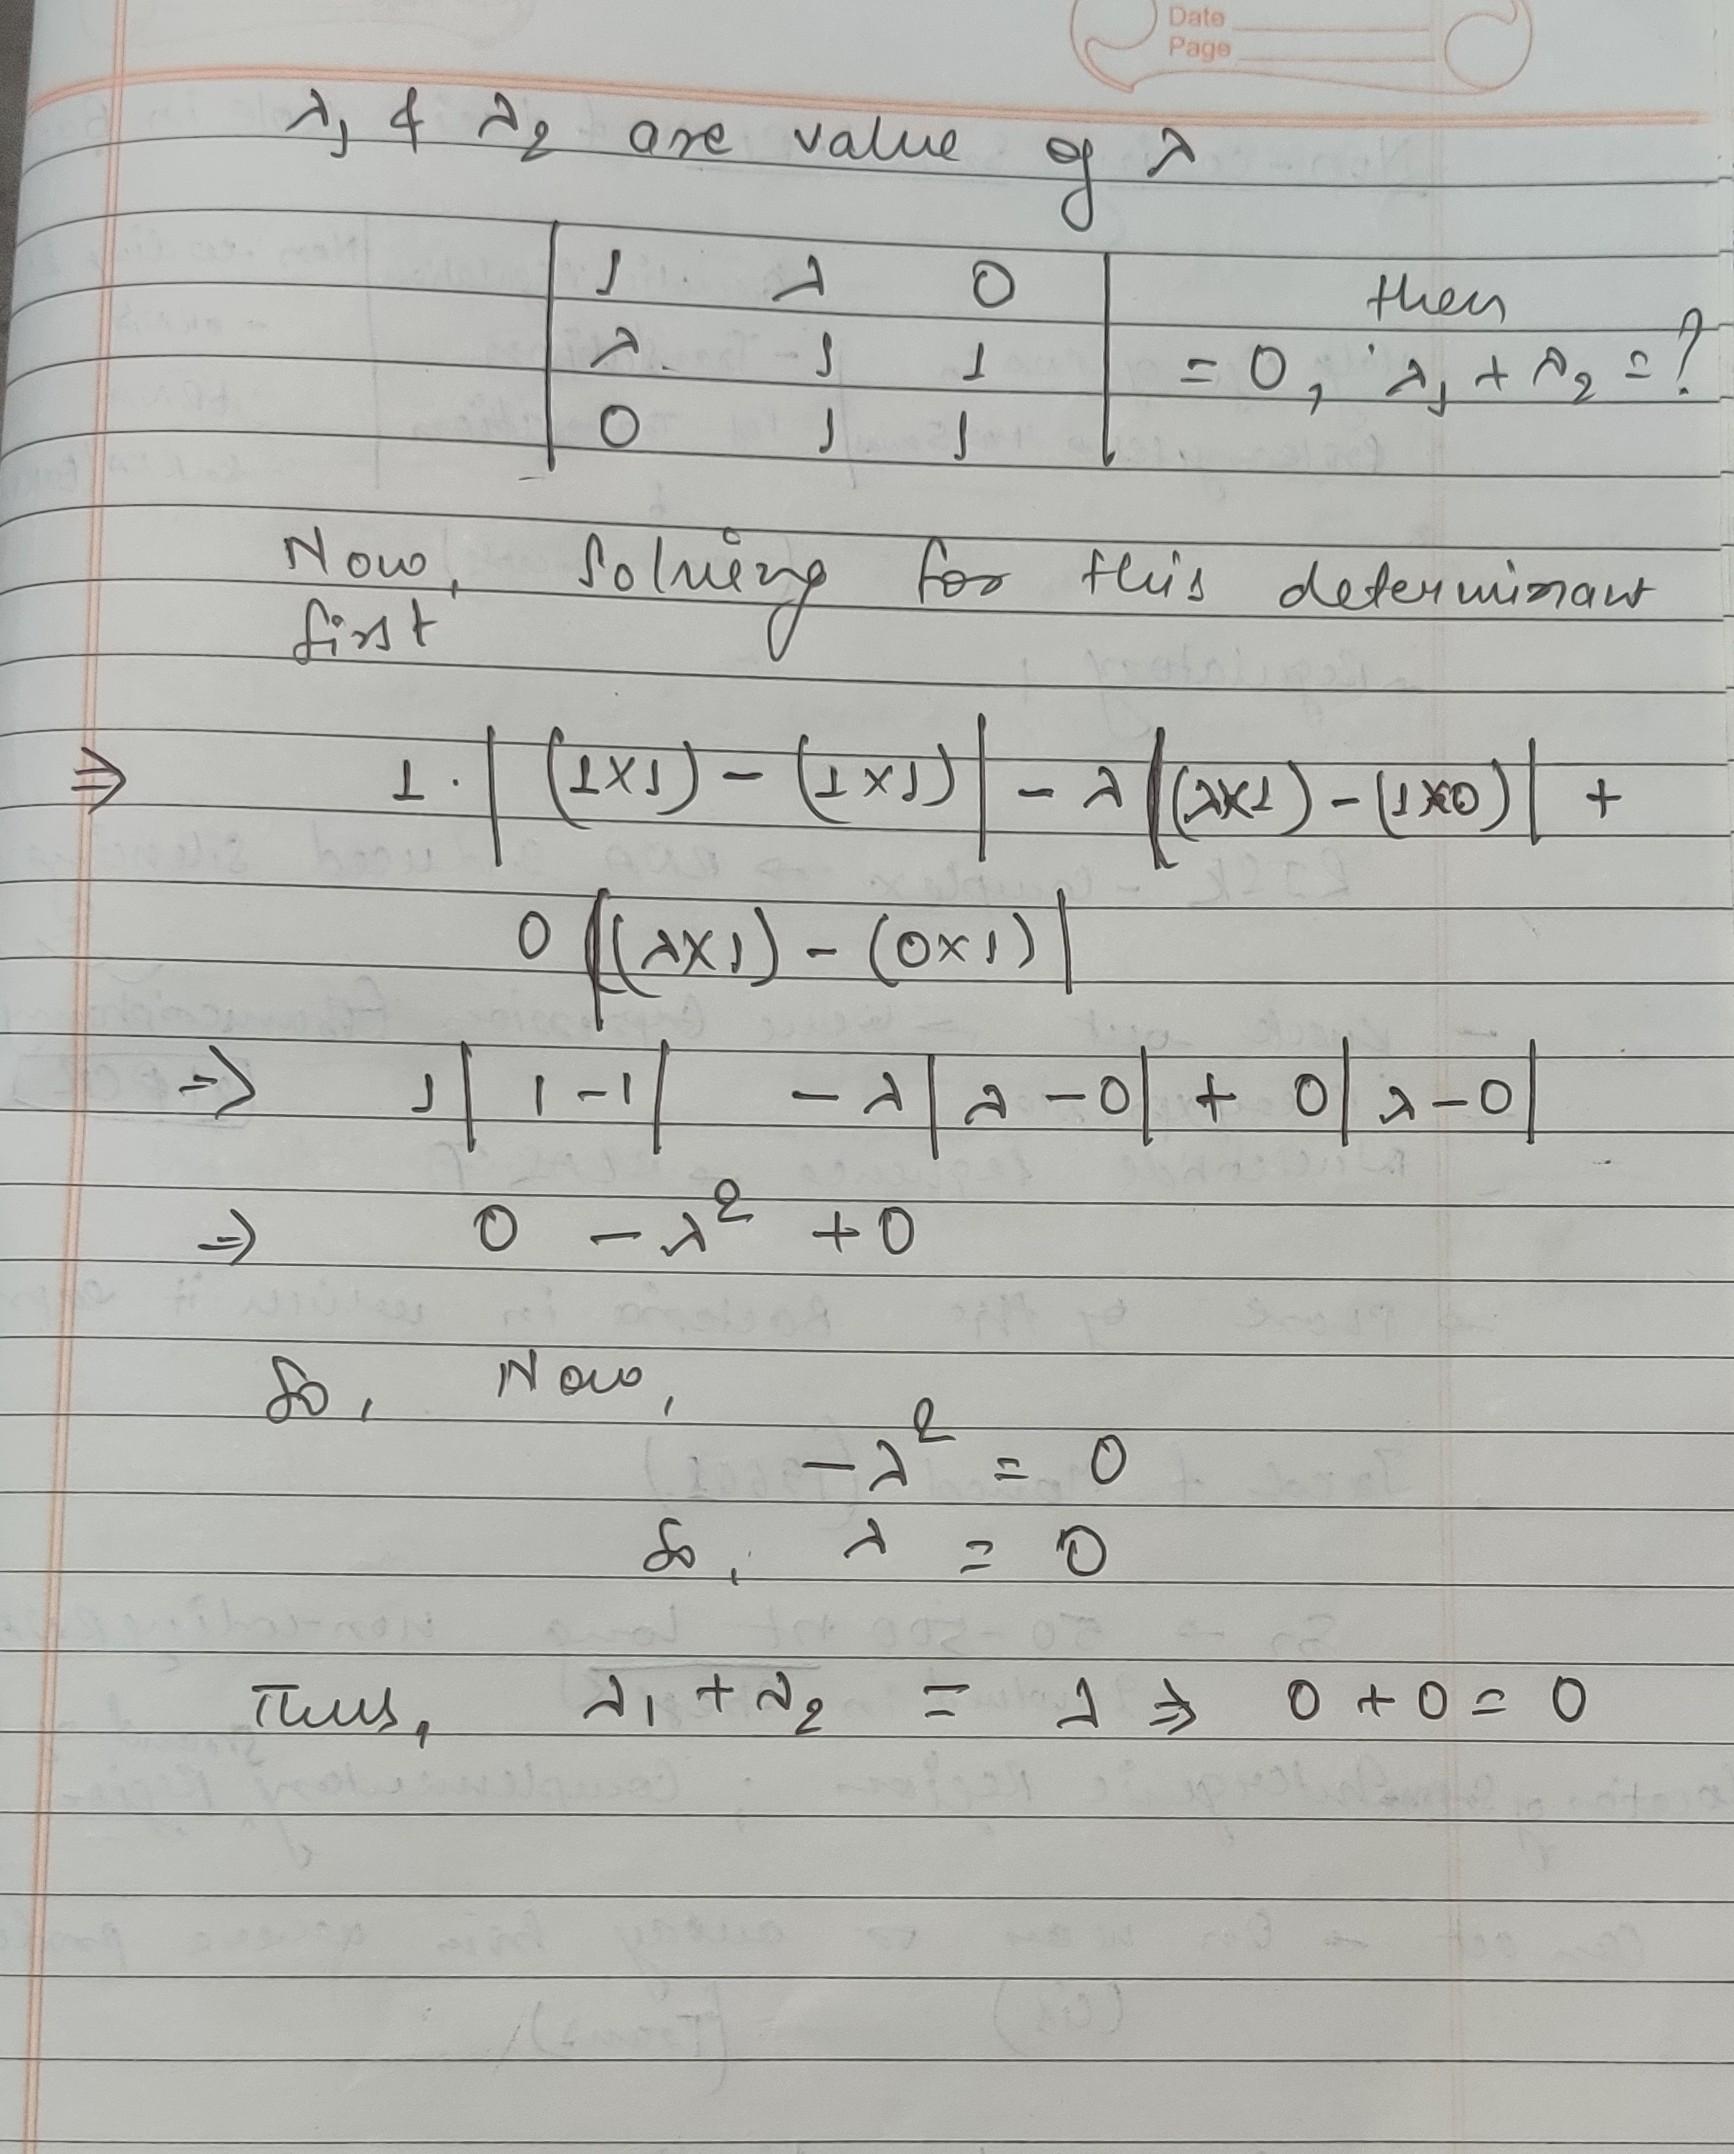 Date
Page
λ₁ & λ₂ are value of λ
| 1 λ 0 | then
| λ 1 1 | = 0, λ₁ + λ₂ = ?
| 0 1 1 |
Now, Solving for this determinant
first
⇒ 1 · | (1×1) - (1×1) | - λ | (λ×1) - (1×0) | +
0 | (λ×1) - (0×1) |
⇒ 1 | 1-1 | - λ | λ - 0 | + 0 | λ - 0 |
⇒ 0 - λ² + 0
So, Now,
- λ² = 0
So, λ = 0
Thus, λ₁ + λ₂ = λ ⇒ 0 + 0 = 0